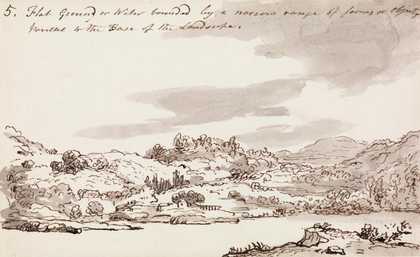 5. Flat Ground or Water bounded by a narrow range of forms or Objects
parallel to the Base of the Landscape.